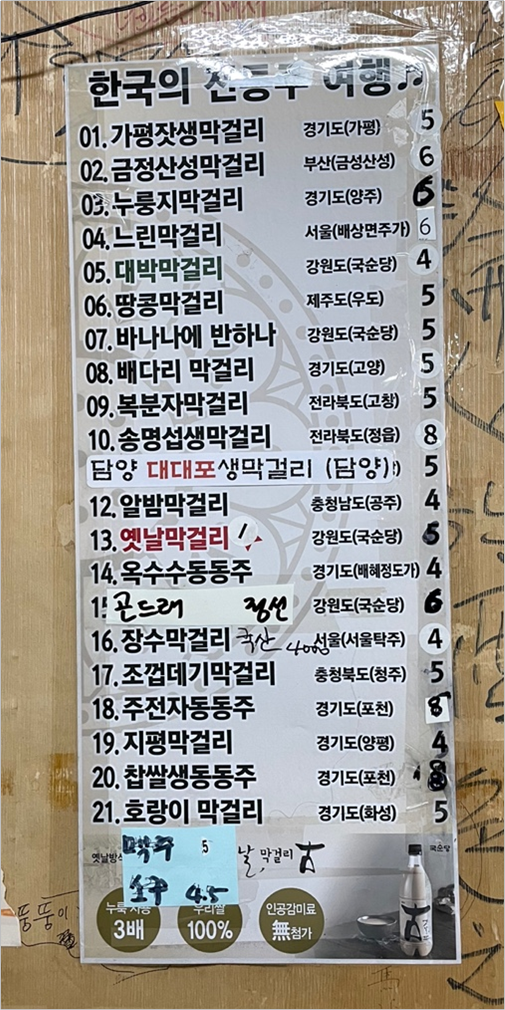 한국의 전통주 여행♬
01. 가평잣생막걸리 경기도(가평) 5
02. 금정산성막걸리 부산(금성산성) 6
03. 누룽지막걸리 경기도(양주) 6
04. 느린막걸리 서울(배상면주가) 6
05. 대박막걸리 강원도(국순당) 4
06. 땅콩막걸리 제주도(우도) 5
07. 바나나에 반하나 강원도(국순당) 5
08. 배다리 막걸리 경기도(고양) 5
09. 복분자막걸리 전라북도(고창) 5
10. 송명섭생막걸리 전라북도(정읍) 8
담양 대대포생막걸리 (담양) 5
12. 알밤막걸리 충청남도(공주) 4
13. 옛날막걸리 ! 강원도(국순당) 5
14. 옥수수동동주 경기도(배혜정도가) 4
15 곤드래 정선 강원도(국순당) 6
16. 장수막걸리 국산 서울(서울탁주) 4
17. 조껍데기막걸리 충청북도(청주) 5
18. 주전자동동주 경기도(포천) 8
19. 지평막걸리 경기도(양평) 4
20. 찹쌀생동동주 경기도(포천) 8
21. 호랑이 막걸리 경기도(화성) 5
맥주 5
소주 4.5
옛날방식 날, 막걸리 古 국순당
누룩 사용 우리쌀 인공감미료
3배 100% 無첨가
뚱뚱이